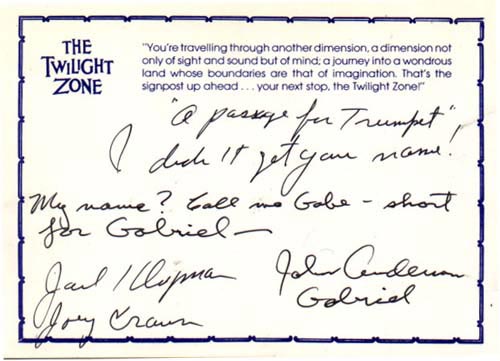 THE
TWILIGHT
ZONE
"You're travelling through another dimension, a dimension not
only of sight and sound but of mind; a journey into a wondrous
land whose boundaries are that of imagination. That's the
signpost up ahead . . . your next stop, the Twilight Zone!"
"A passage for Trumpet",
I didn't get your name!
My name? Call me Gabe - short
for Gabriel —
Jack Klugman
Joey Crown
John Anderson
Gabriel